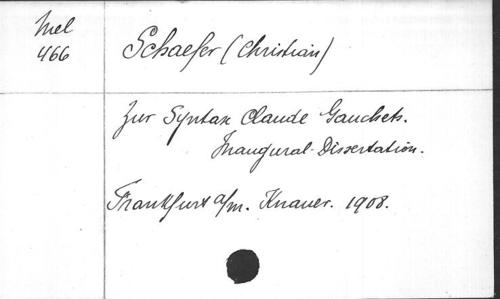 Mel
466
Schaefer (Christian)
Zur Syntax Claude Gauchets.
Inaugural-Dissertation.
Frankfurt a/m. Knauer. 1908.